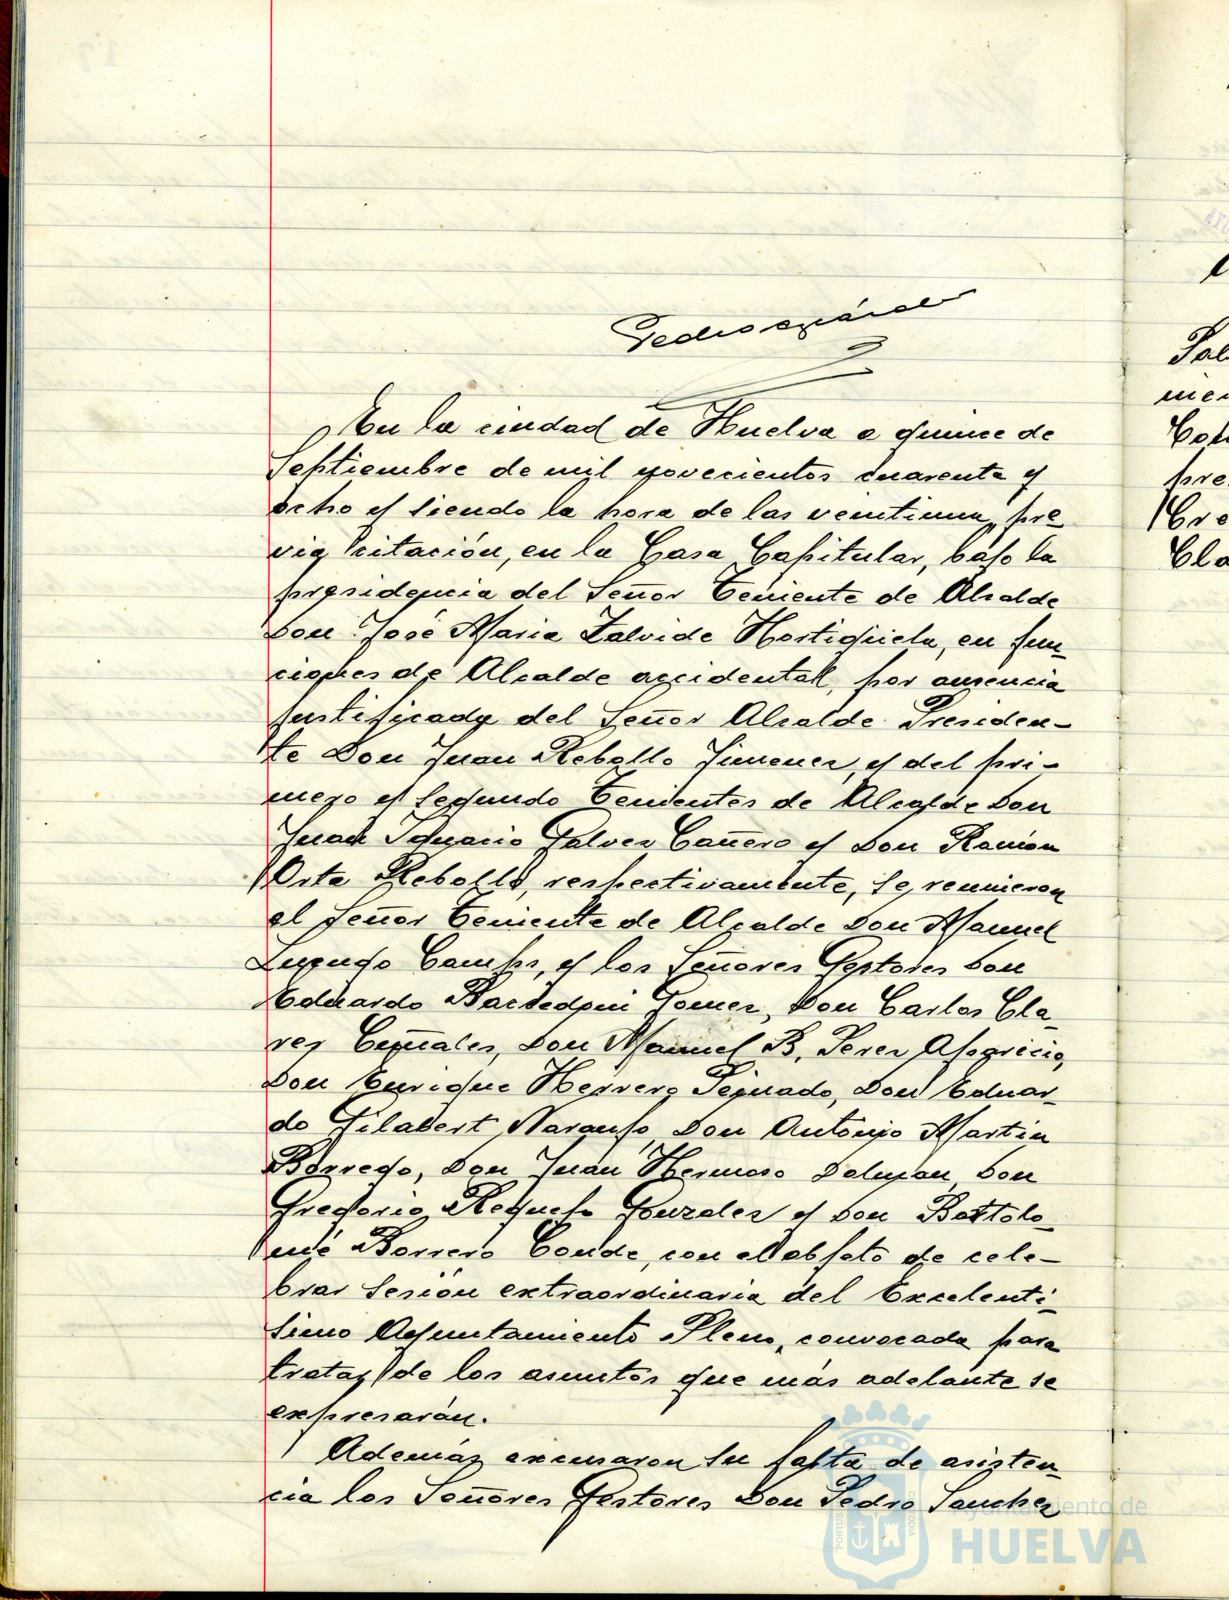 En la ciudad de Huelva a quince de
Septiembre de mil novecientos cuarenta y
ocho y siendo la hora de las veintiuna, pre
via citación, en la Casa Capitular, bajo la
presidencia del Señor Teniente de Alcalde
Don José Maria Zalvide Hortigüela, en fun-
ciones de Alcalde accidental, por ausencia
justificada del Señor Alcalde Presiden-
te Don Juan Rebollo Jimenez, y del pri-
mero y segundo Tenientes de Alcalde Don
Juan Ignacio Galvez Cañero y Don Ramón
Orta Rebollo, respectivamente, se reunieron
el Señor Teniente de Alcalde Don Manuel
Luengo y los Señores Gestores Don
Eduardo Gomez, Don Carlos Cla-
rez Don Manuel B. Perez Aparicio,
Don Enrique Herrero Don Eduar-
do Gilabert Naranjo, Don Antonio Martin
Borrego, Don Juan Hermoso Don
Gregorio Gonzalez y Don Bartolo
mé Borrero Conde, con el objeto de cele-
brar Sesión extraordinaria del Excelentí-
simo Ayuntamiento Pleno, convocada para
tratar de los asuntos que más adelante se
expresarán.
Además excusaron su falta de asisten-
cia los Señores Gestores Don Pedro Sanchez
Ayuntamiento de
HUELVA